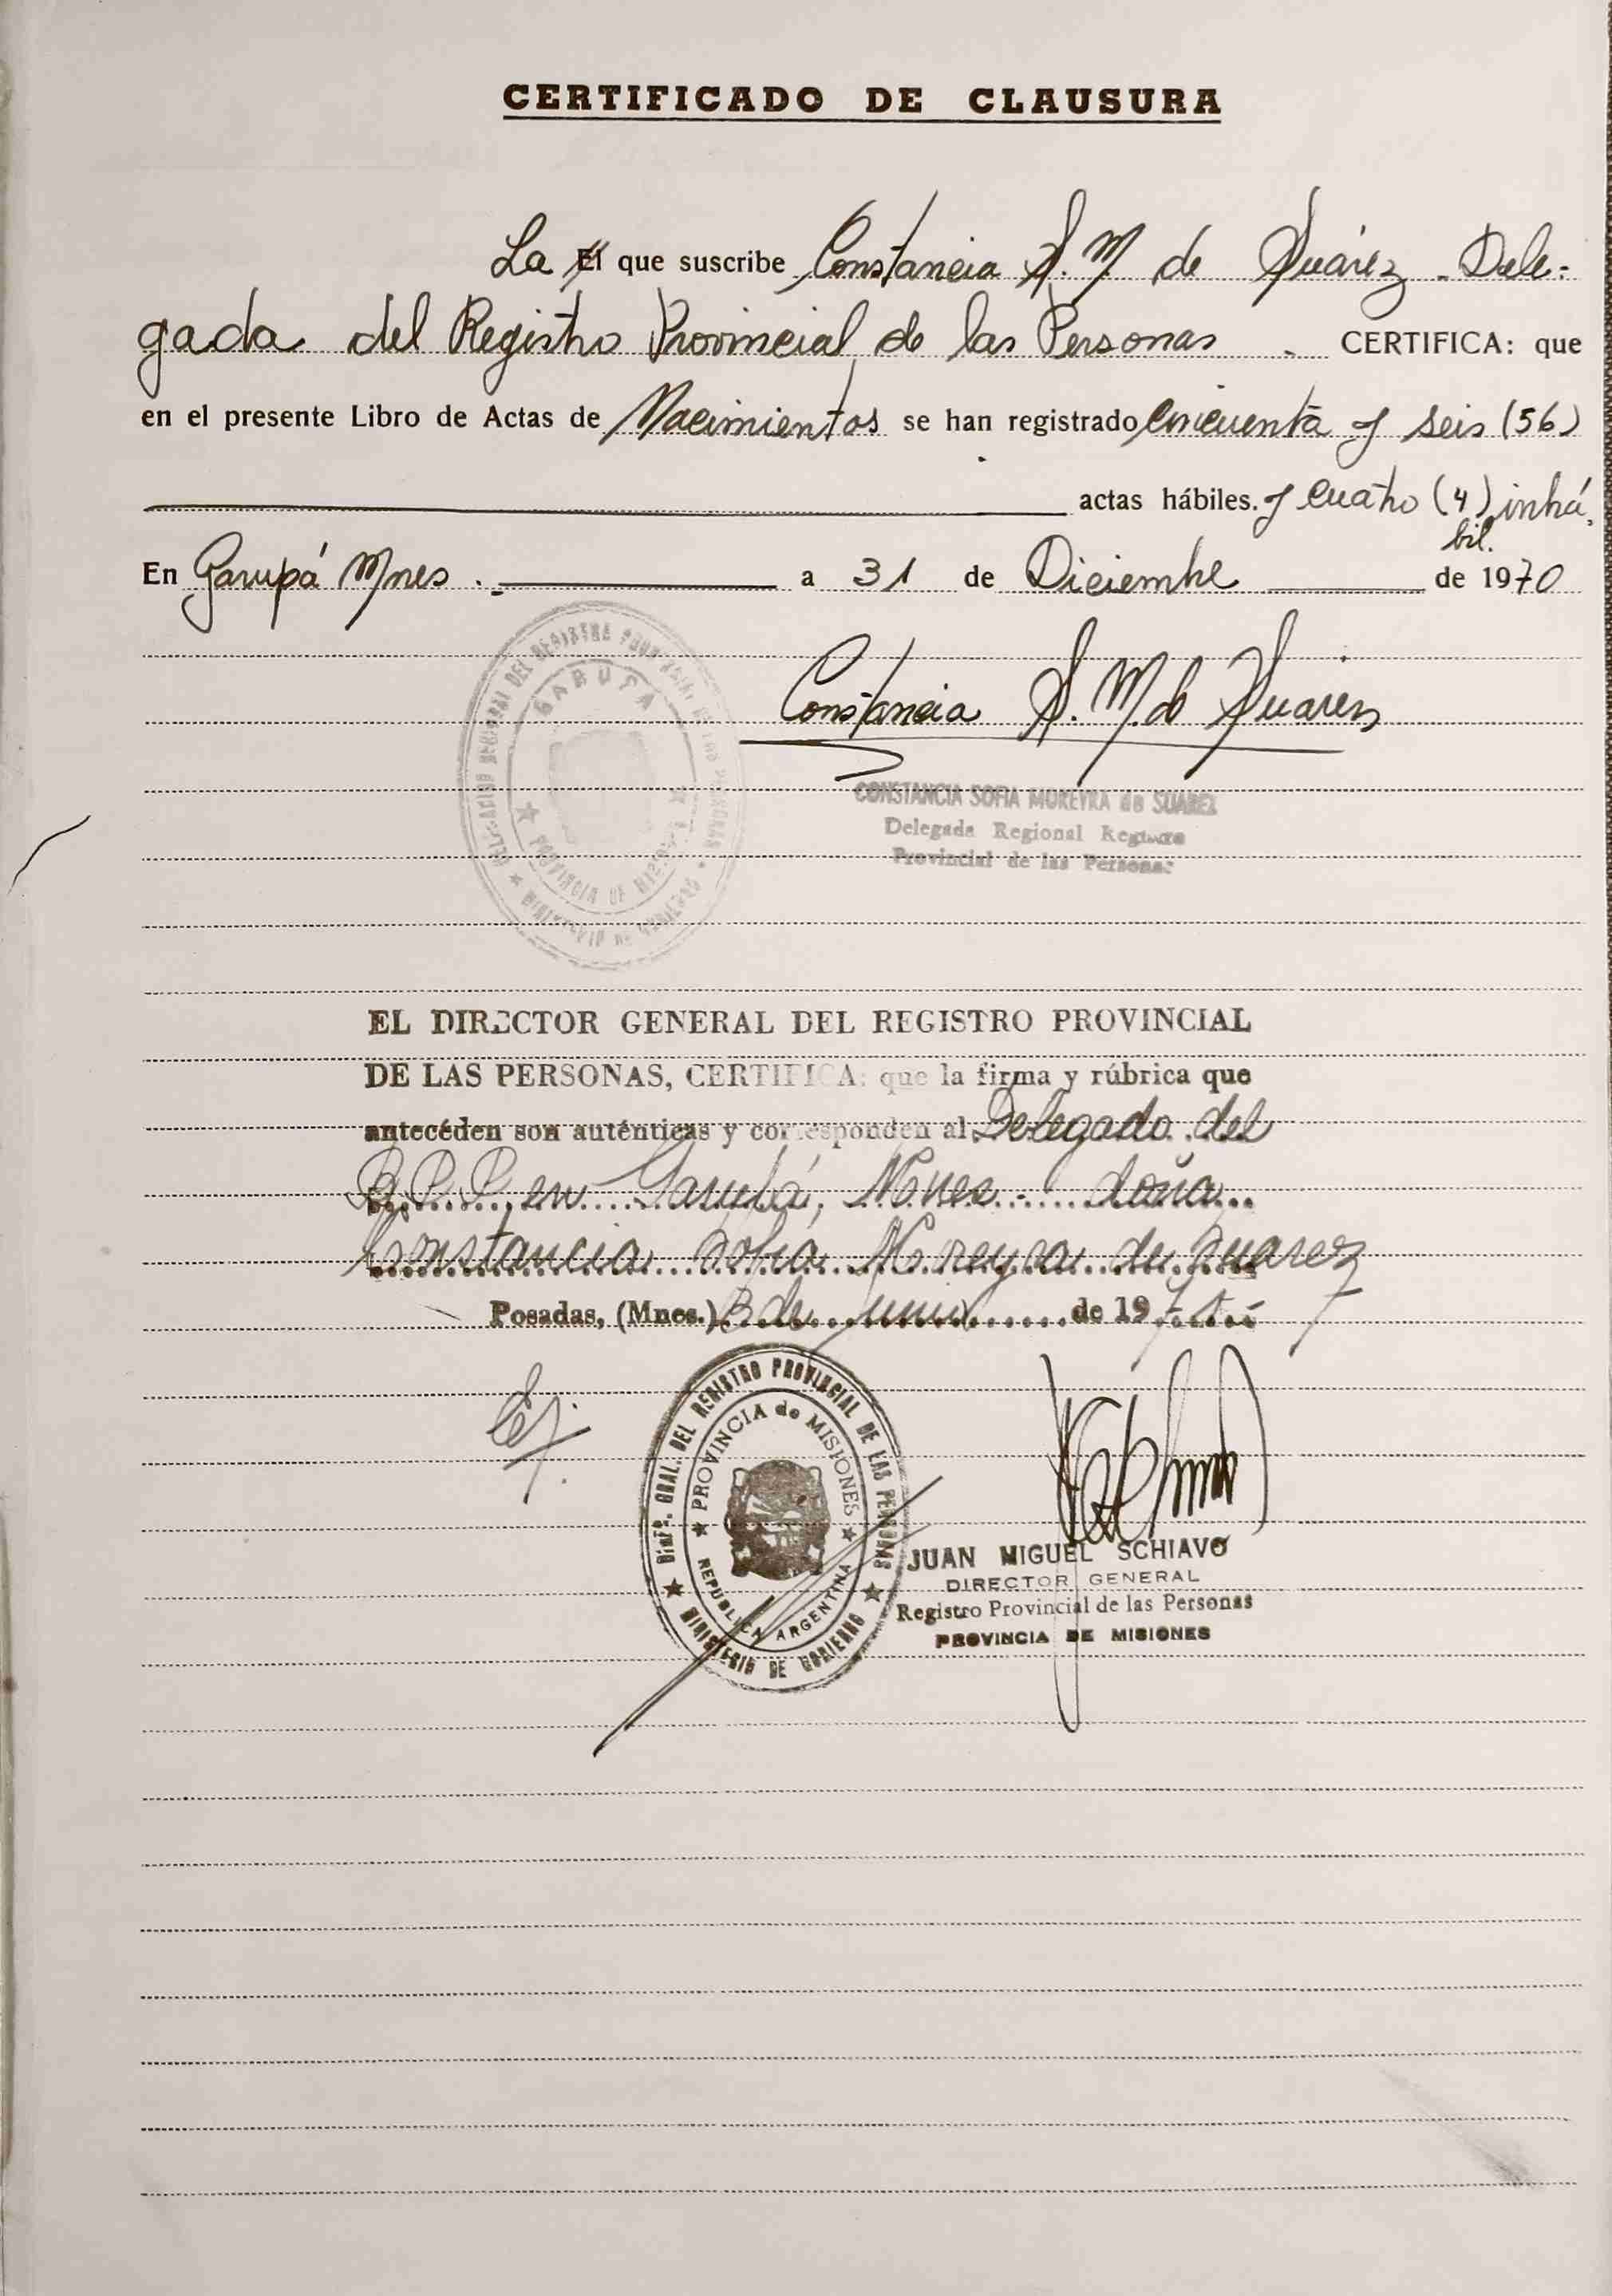 CERTIFICADO DE CLAUSURA
La El que suscribe Constancia S. M. de Suárez - Dele-
gada del Registro Provincial de las Personas. CERTIFICA: que
en el presente Libro de Actas de Nacimientos se han registrado Cincuenta y seis (56)
actas hábiles. y cuatro (4) inhá-
bil.
En Garupá Mnes. a 31 de Diciembre de 1970
GARUPA
PROVINCIA DE MISIONES
Constancia S. M. de Suarez
CONSTANCIA SOFIA MOREYRA de SUAREZ
Delegada Regional Registro
Provincial de las Personas
EL DIRECTOR GENERAL DEL REGISTRO PROVINCIAL
DE LAS PERSONAS, CERTIFICA: que la firma y rúbrica que
antecéden son auténticas y corresponden al Delegado del
R.P.P. en Garupá, Mnes. - doña
Constancia Sofia Moreyra de Suarez
Posadas, (Mnes.) 3 de junio de 1971
Dirección GRAL. DEL REGISTRO PROVINCIAL DE LAS PERSONAS
PROVINCIA de MISIONES
REPUBLICA ARGENTINA
MINISTERIO DE GOBIERNO
JUAN MIGUEL SCHIAVO
DIRECTOR GENERAL
Registro Provincial de las Personas
PROVINCIA DE MISIONES